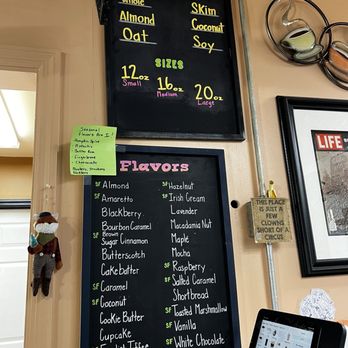 Whole
Almond
Oat
Skim
Coconut
Soy
SIZES
12oz Small
16oz Medium
20oz Large
Seasonal
Flavors Are I!
Pumpkin Spice
Pistachio
Butter Rum
Gingerbread
Cheesecake
Flavors
SF Almond
SF Amaretto
Blackberry
Bourbon Caramel
SF Brown Sugar Cinnamon
Butterscotch
Cake batter
SF Caramel
SF Coconut
Cookie Butter
Cupcake
Toffee
SF Hazelnut
SF Irish Cream
Lavender
Macadamia Nut
Maple
Mocha
SF Raspberry
SF Salted Caramel
Shortbread
SF Toasted Marshmallow
SF Vanilla
SF White Chocolate
LIFE
THIS PLACE
IS JUST A
FEW CLOWNS
SHORT OF A
CIRCUS